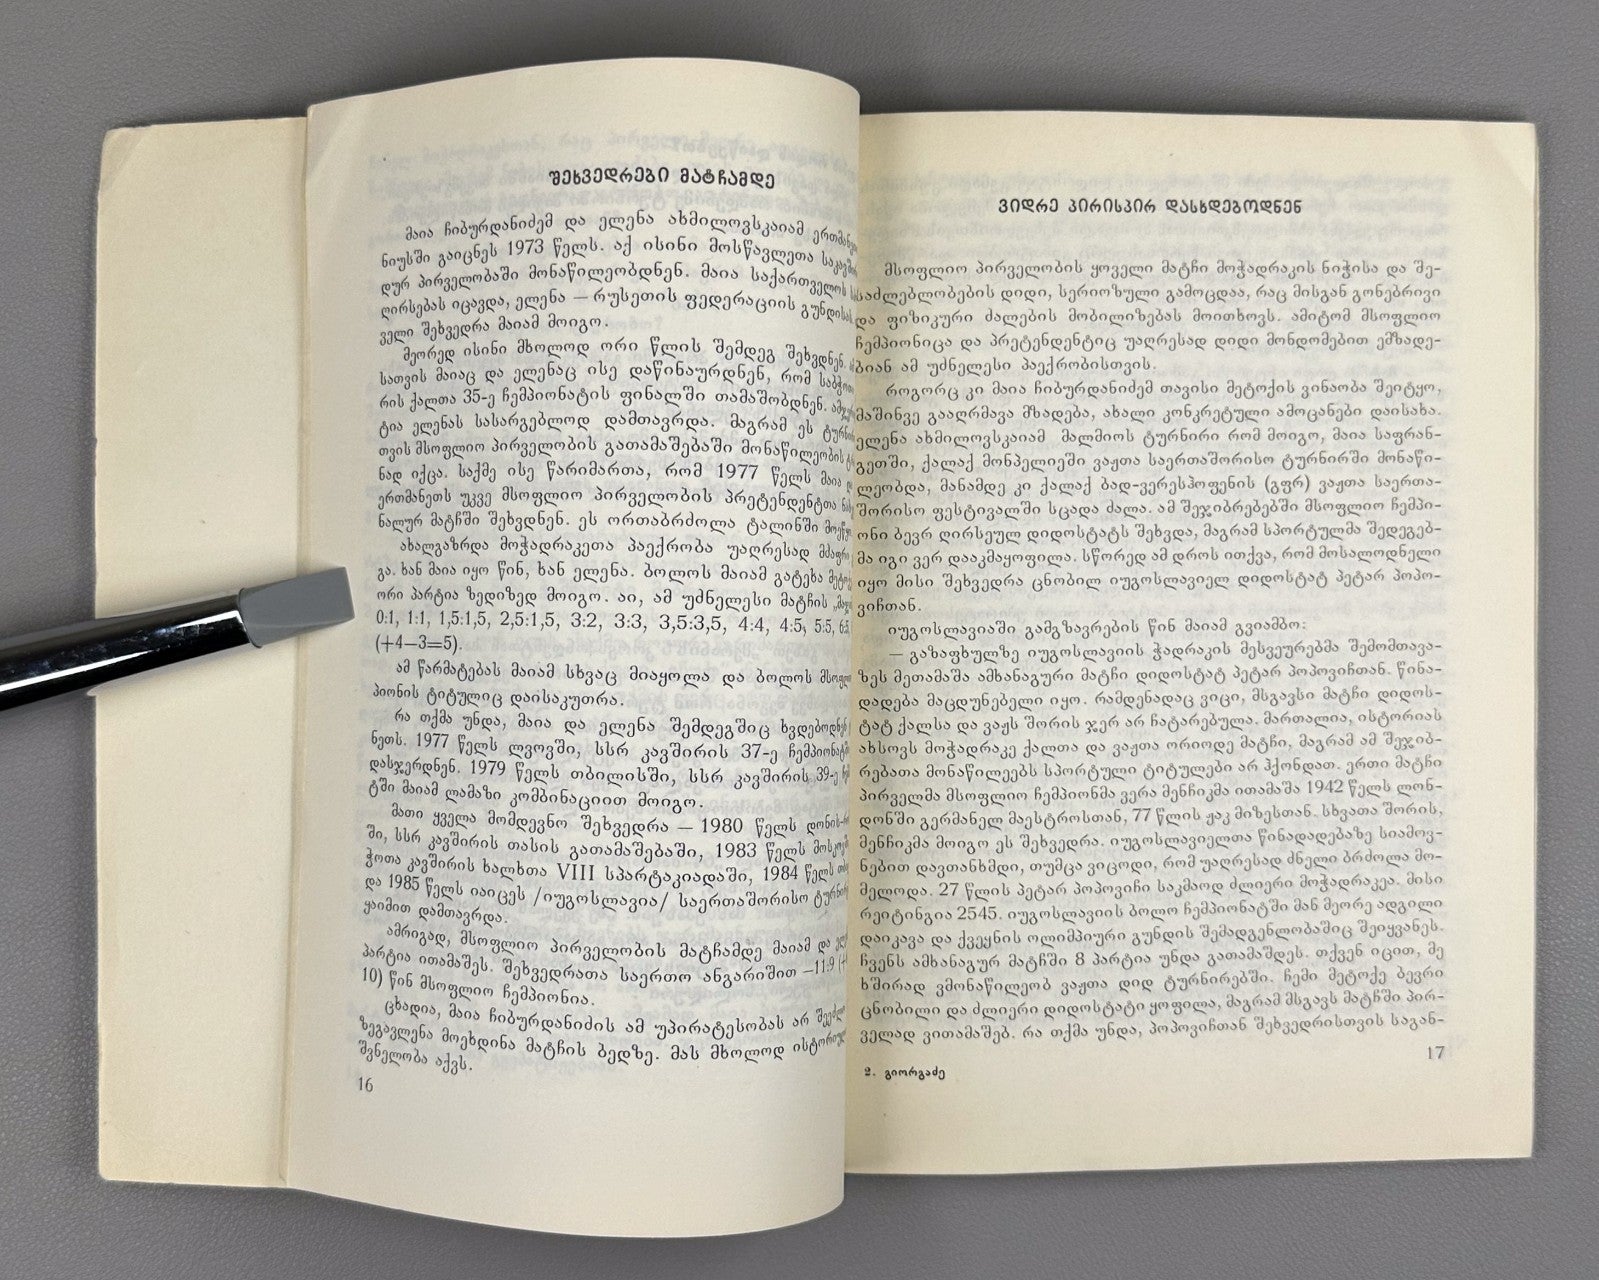 შეხვედრები მატჩამდე
მაია ჩიბურდანიძემ და ელენა ახმილოვსკაიამ
ნიუსში გაიცნეს 1973 წელს. აქ ისინი მოსწავლეთა
დურ პირველობაში მონაწილეობდნენ. მაია საქართველოს
ღირსებას იცავდა, ელენა — რუსეთის ფედერაციის გუნდისას.
ველი შეხვედრა მაიამ მოიგო.
მეორედ ისინი მხოლოდ ორი წლის შემდეგ შეხვდნენ.
სათვის მაიაც და ელენაც ისე დაწინაურდნენ, რომ
რის ქალთა 35-ე ჩემპიონატის ფინალში თამაშობდნენ.
ტია ელენას სასარგებლოდ დამთავრდა. მაგრამ ეს
თვის მსოფლიო პირველობის გათამაშებაში მონაწილეობის
ნად იქცა. საქმე ისე წარიმართა, რომ 1977 წელს მაია
ერთმანეთს უკვე მსოფლიო პირველობის პრეტენდენტთა
ნალურ მატჩში შეხვდნენ. ეს ორთაბრძოლა ტალინში
ახალგაზრდა მოჭადრაკეთა პაექრობა უაღრესად
გა. ხან მაია იყო წინ, ხან ელენა. ბოლოს მაიამ გატეხა
ორი პარტია ზედიზედ მოიგო. აი, ამ უძნელესი მატჩის
0:1, 1:1, 1,5:1,5, 2,5:1,5, 3:2, 3:3, 3,5:3,5, 4:4, 4:5, 5:5,
(+4—3=5).
ამ წარმატებას მაიამ სხვაც მიაყოლა და ბოლოს
პიონის ტიტულიც დაისაკუთრა.
რა თქმა უნდა, მაია და ელენა შემდეგშიც ხვდებოდნენ
ნეთს. 1977 წელს ლვოვში, სსრ კავშირის 37-ე
დასჯერდნენ. 1979 წელს თბილისში, სსრ კავშირის 39-ე
ტში მაიამ ლამაზი კომბინაციით მოიგო.
მათი ყველა მომდევნო შეხვედრა — 1980 წელს
ში, სსრ კავშირის თასის გათამაშებაში, 1983 წელს
ჭოთა კავშირის ხალხთა VIII სპარტაკიადაში, 1984 წელს
და 1985 წელს იაიცეს /იუგოსლავია/ საერთაშორისო
ყაიმით დამთავრდა.
ამრიგად, მსოფლიო პირველობის მატჩამდე მაიამ და
პარტია ითამაშეს. შეხვედრათა საერთო ანგარიშით —11:9
10) წინ მსოფლიო ჩემპიონია.
ცხადია, მაია ჩიბურდანიძის ამ უპირატესობას არ
ზეგავლენა მოეხდინა მატჩის ბედზე. მას მხოლოდ
შვნელობა აქვს.
16
ვიდრე პირისპირ დასხდებოდნენ
მსოფლიო პირველობის ყოველი მატჩი მოჭადრაკის ნიჭისა და შე-
საძლებლობების დიდი, სერიოზული გამოცდაა, რაც მისგან გონებრივი
და ფიზიკური ძალების მობილიზებას მოითხოვს. ამიტომ მსოფლიო
ჩემპიონიცა და პრეტენდენტიც უაღრესად დიდი მონდომებით ემზადე-
ბიან ამ უძნელესი პაექრობისთვის.
როგორც კი მაია ჩიბურდანიძემ თავისი მეტოქის ვინაობა შეიტყო,
მაშინვე გააღრმავა მზადება, ახალი კონკრეტული ამოცანები დაისახა.
ელენა ახმილოვსკაიამ მალმიოს ტურნირი რომ მოიგო, მაია საფრან-
გეთში, ქალაქ მონპელიეში ვაჟთა საერთაშორისო ტურნირში მონაწი-
ლეობდა, მანამდე კი ქალაქ ბად-ვერესჰოფენის (გფრ) ვაჟთა საერთა-
შორისო ფესტივალში სცადა ძალა. ამ შეჯიბრებებში მსოფლიო ჩემპი-
ონი ბევრ ღირსეულ დიდოსტატს შეხვდა, მაგრამ სპორტულმა შედეგებ-
მა იგი ვერ დააკმაყოფილა. სწორედ ამ დროს ითქვა, რომ მოსალოდნელი
იყო მისი შეხვედრა ცნობილ იუგოსლავიელ დიდოსტატ პეტარ პოპო-
ვიჩთან.
იუგოსლავიაში გამგზავრების წინ მაიამ გვიამბო:
— გაზაფხულზე იუგოსლავიის ჭადრაკის მესვეურებმა შემომთავა-
ზეს მეთამაშა ამხანაგური მატჩი დიდოსტატ პეტარ პოპოვიჩთან. წინა-
დადება მაცდუნებელი იყო. რამდენადაც ვიცი, მსგავსი მატჩი დიდოს-
ტატ ქალსა და ვაჟს შორის ჯერ არ ჩატარებულა. მართალია, ისტორიას
ახსოვს მოჭადრაკე ქალთა და ვაჟთა ორიოდე მატჩი, მაგრამ ამ შეჯიბ-
რებათა მონაწილეებს სპორტული ტიტულები არ ჰქონდათ. ერთი მატჩი
პირველმა მსოფლიო ჩემპიონმა ვერა მენჩიკმა ითამაშა 1942 წელს ლონ-
დონში გერმანელ მაესტროსთან, 77 წლის ჟაკ მიზესთან. სხვათა შორის,
მენჩიკმა მოიგო ეს შეხვედრა. იუგოსლავიელთა წინადადებაზე სიამოვ-
ნებით დავთანხმდი, თუმცა ვიცოდი, რომ უაღრესად ძნელი ბრძოლა მო-
მელოდა. 27 წლის პეტარ პოპოვიჩი საკმაოდ ძლიერი მოჭადრაკეა. მისი
რეიტინგია 2545. იუგოსლავიის ბოლო ჩემპიონატში მან მეორე ადგილი
დაიკავა და ქვეყნის ოლიმპიური გუნდის შემადგენლობაშიც შეიყვანეს.
ჩვენს ამხანაგურ მატჩში 8 პარტია უნდა გათამაშდეს. თქვენ იცით, მე
ხშირად ვმონაწილეობ ვაჟთა დიდ ტურნირებში. ჩემი მეტოქე ბევრი
ცნობილი და ძლიერი დიდოსტატი ყოფილა, მაგრამ მსგავს მატჩში პირ-
ველად ვითამაშებ. რა თქმა უნდა, პოპოვიჩთან შეხვედრისთვის საგან-
2. გიორგაძე
17